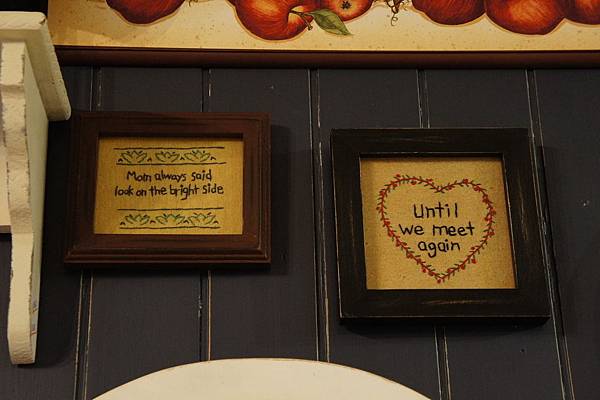 Mom always said
look on the bright side
Until
we meet
again